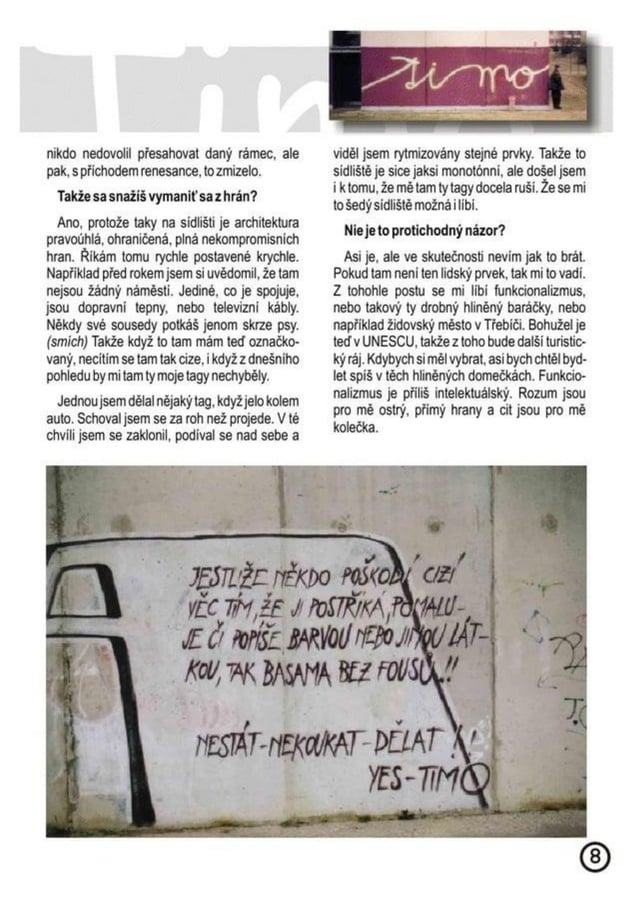 Timo
timo
nikdo nedovolil přesahovat daný rámec, ale
pak, s příchodem renesance, to zmizelo.
Takže sa snažíš vymaniť sa z hrán?
Ano, protože taky na sídlišti je architektura
pravoúhlá, ohraničená, plná nekompromisních
hran. Říkám tomu rychle postavené krychle.
Například před rokem jsem si uvědomil, že tam
nejsou žádný náměstí. Jediné, co je spojuje,
jsou dopravní tepny, nebo televizní kábly.
Někdy své sousedy potkáš jenom skrze psy.
(smích) Takže když to tam mám teď označko-
vaný, necítím se tam tak cize, i když z dnešního
pohledu by mi tam ty moje tagy nechyběly.
Jednou jsem dělal nějaký tag, když jelo kolem
auto. Schoval jsem se za roh než projede. V té
chvíli jsem se zaklonil, podíval se nad sebe a
viděl jsem rytmizovány stejné prvky. Takže to
sídliště je sice jaksi monotónní, ale došel jsem
i k tomu, že mě tam ty tagy docela ruší. Že se mi
to šedý sídliště možná i líbí.
Nie je to protichodný názor?
Asi je, ale ve skutečnosti nevím jak to brát.
Pokud tam není ten lidský prvek, tak mi to vadí.
Z tohohle postu se mi líbí funkcionalizmus,
nebo takový ty drobný hliněný baráčky, nebo
například židovský město v Třebíči. Bohužel je
teď v UNESCU, takže z toho bude další turistic-
ký ráj. Kdybych si měl vybrat, asi bych chtěl byd-
let spíš v těch hliněných domečkách. Funkcio-
nalizmus je příliš intelektuálský. Rozum jsou
pro mě ostrý, přímý hrany a cit jsou pro mě
kolečka.
JESTLIŽE NĚKDO POŠKODÍ CIZÍ
VĚC TÍM, ŽE JI POSTŘÍKÁ, POMALU-
JE ČI POPÍŠE BARVOU NEBO JINOU LÁT-
KOU, TAK BASAMA BEZ FOUSŮ..!!
NESTÁT-NEKOUKAT-DĚLAT!!
YES-TIMO
8